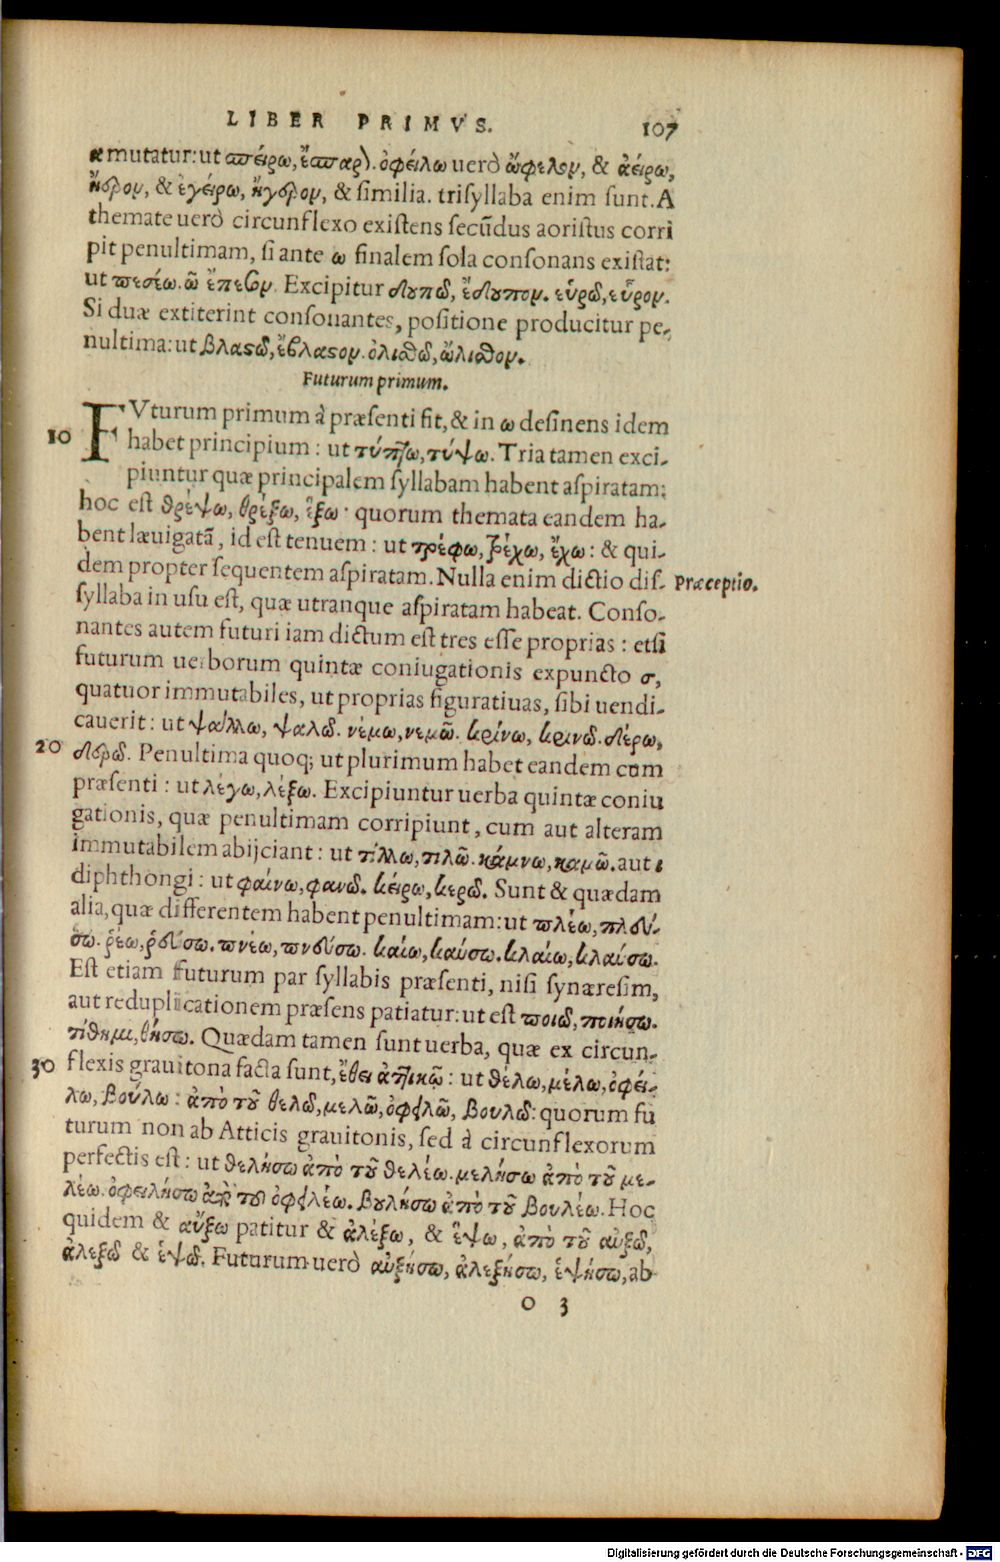 LIBER PRIMVS. 107
α mutatur: ut σπείρω, ἔσπαρον. ὀφείλω uerò ὤφελον, & ἀείρω,
ἤερον, & ἐγείρω, ἤγερον, & similia. trisyllaba enim sunt. A
themate uerò circunflexo existens secũdus aoristus corri
pit penultimam, si ante ω finalem sola consonans existat:
ut πεσέω. ῶ ἔπεσον. Excipitur δουπῶ, ἔδουπον. εὑρῶ, εὗρον.
Si duæ extiterint consonantes, positione producitur pe-
nultima: ut βλαστῶ, ἔβλαστον. ὀλισθῶ, ὤλισθον.
Futurum primum.
FVturum primum à præsenti fit, & in ω desinens idem
10 habet principium: ut τύπτω, τύψω. Tria tamen exci-
piuntur quæ principalem syllabam habent aspiratam:
hoc est θρέψω, θρέξω, ἕξω· quorum themata eandem ha-
bent læuigatã, id est tenuem: ut τρέφω, τρέχω, ἔχω: & qui-
dem propter sequentem aspiratam. Nulla enim dictio dis- Præceptio.
syllaba in usu est, quæ utranque aspiratam habeat. Conso-
nantes autem futuri iam dictum est tres esse proprias: etsi
futurum uerborum quintæ coniugationis expuncto σ,
quatuor immutabiles, ut proprias figuratiuas, sibi uendi-
cauerit: ut ψάλλω, ψαλῶ. νέμω, νεμῶ. κρίνω, κρινῶ. δέρω,
20 δερῶ. Penultima quoq; ut plurimum habet eandem cum
præsenti: ut λέγω, λέξω. Excipiuntur uerba quintæ coniu
gationis, quæ penultimam corripiunt, cum aut alteram
immutabilem abijciant: ut τίλλω, τιλῶ. κάμνω, καμῶ. aut ι
diphthongi: ut φαίνω, φανῶ. κείρω, κερῶ. Sunt & quædam
alia, quæ differentem habent penultimam: ut πλέω, πλεύ-
σω. ῥέω, ῥεύσω. πνέω, πνεύσω. καίω, καύσω. κλαίω, κλαύσω.
Est etiam futurum par syllabis præsenti, nisi synæresim,
aut reduplicationem præsens patiatur: ut est ποιῶ, ποιήσω.
τίθημι, θήσω. Quædam tamen sunt uerba, quæ ex circun-
30 flexis grauitona facta sunt, ἔθει ἀττικῷ: ut θέλω, μέλω, ὀφεί-
λω, βούλω: ἀπὸ τοῦ θελῶ, μελῶ, ὀφειλῶ, βουλῶ: quorum fu
turum non ab Atticis grauitonis, sed à circunflexorum
perfectis est: ut θελήσω ἀπὸ τοῦ θελέω. μελήσω ἀπὸ τοῦ με-
λέω. ὀφειλήσω ἀπὸ τοῦ ὀφειλέω. βουλήσω ἀπὸ τοῦ βουλέω. Hoc
quidem & αὔξω patitur & ἀλέξω, & ἕψω, ἀπὸ τοῦ αὐξῶ,
ἀλεξῶ & ἑψῶ. Futurum uerò αὐξήσω, ἀλεξήσω, ἑψήσω, ab
o 3
Digitalisierung gefördert durch die Deutsche Forschungsgemeinschaft - DFG